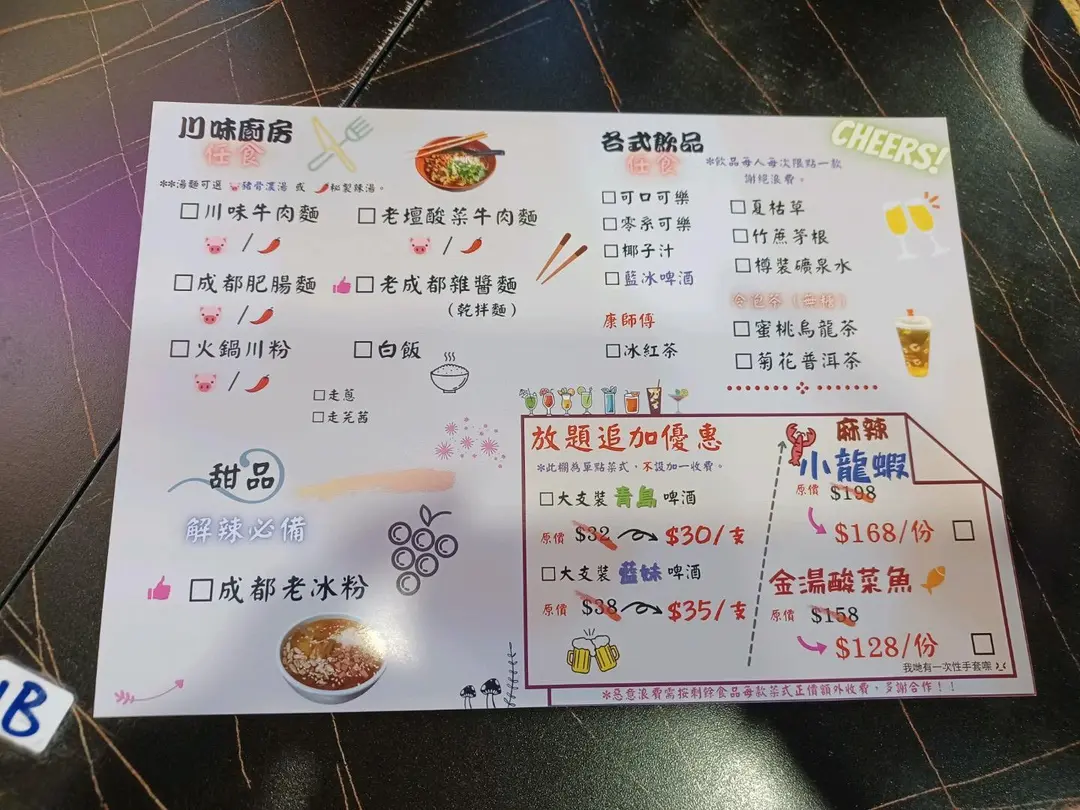 川味廚房
任食
**湯麵可選 豬骨濃湯 或 秘製辣湯。
□川味牛肉麵
□老壇酸菜牛肉麵
/
/
□成都肥腸麵
□老成都雜醬麵
(乾拌麵)
/
□火鍋川粉
□白飯
/
□走蔥
□走芫茜
甜品
解辣必備
□成都老冰粉
各式飲品
任食
*飲品每人每次限點一款
謝絕浪費。
CHEERS!
□可口可樂
□零系可樂
□椰子汁
□藍冰啤酒
康師傅
□冰紅茶
□夏枯草
□竹蔗茅根
□樽裝礦泉水
冷泡茶(無糖)
□蜜桃烏龍茶
□菊花普洱茶
放題追加優惠
*此欄為單點菜式,不設加一收費。
□大支裝 青島 啤酒
原價 $32 $30/支
□大支裝 藍妹 啤酒
原價 $38 $35/支
麻辣
小龍蝦
原價 $198
$168/份 □
金湯酸菜魚
原價 $158
$128/份 □
我哋有一次性手套㗎
*惡意浪費需按剩餘食品每款菜式正價額外收費,多謝合作!!
B